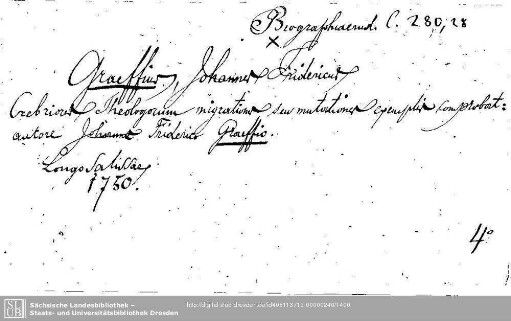 Biographiaerud. C. 280,28
Graeffius, Johannes Fridericus
Crebriores Theologorum migrationes seu mutationes exemplis comprobat=
autore Johanne Friderico Graeffio.
LongoSalissae
1750.
4°
SLUB
Sächsische Landesbibliothek –
Staats- und Universitätsbibliothek Dresden